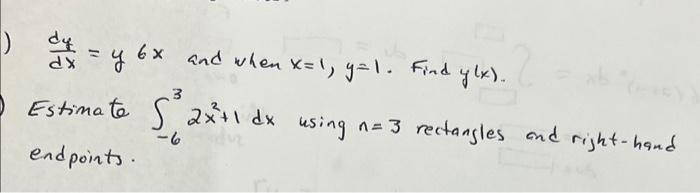 ) dy/dx = y 6x and when x=1, y=1. Find y(x).
) Estimate ∫_{-6}^{3} 2x²+1 dx using n=3 rectangles and right-hand
endpoints.